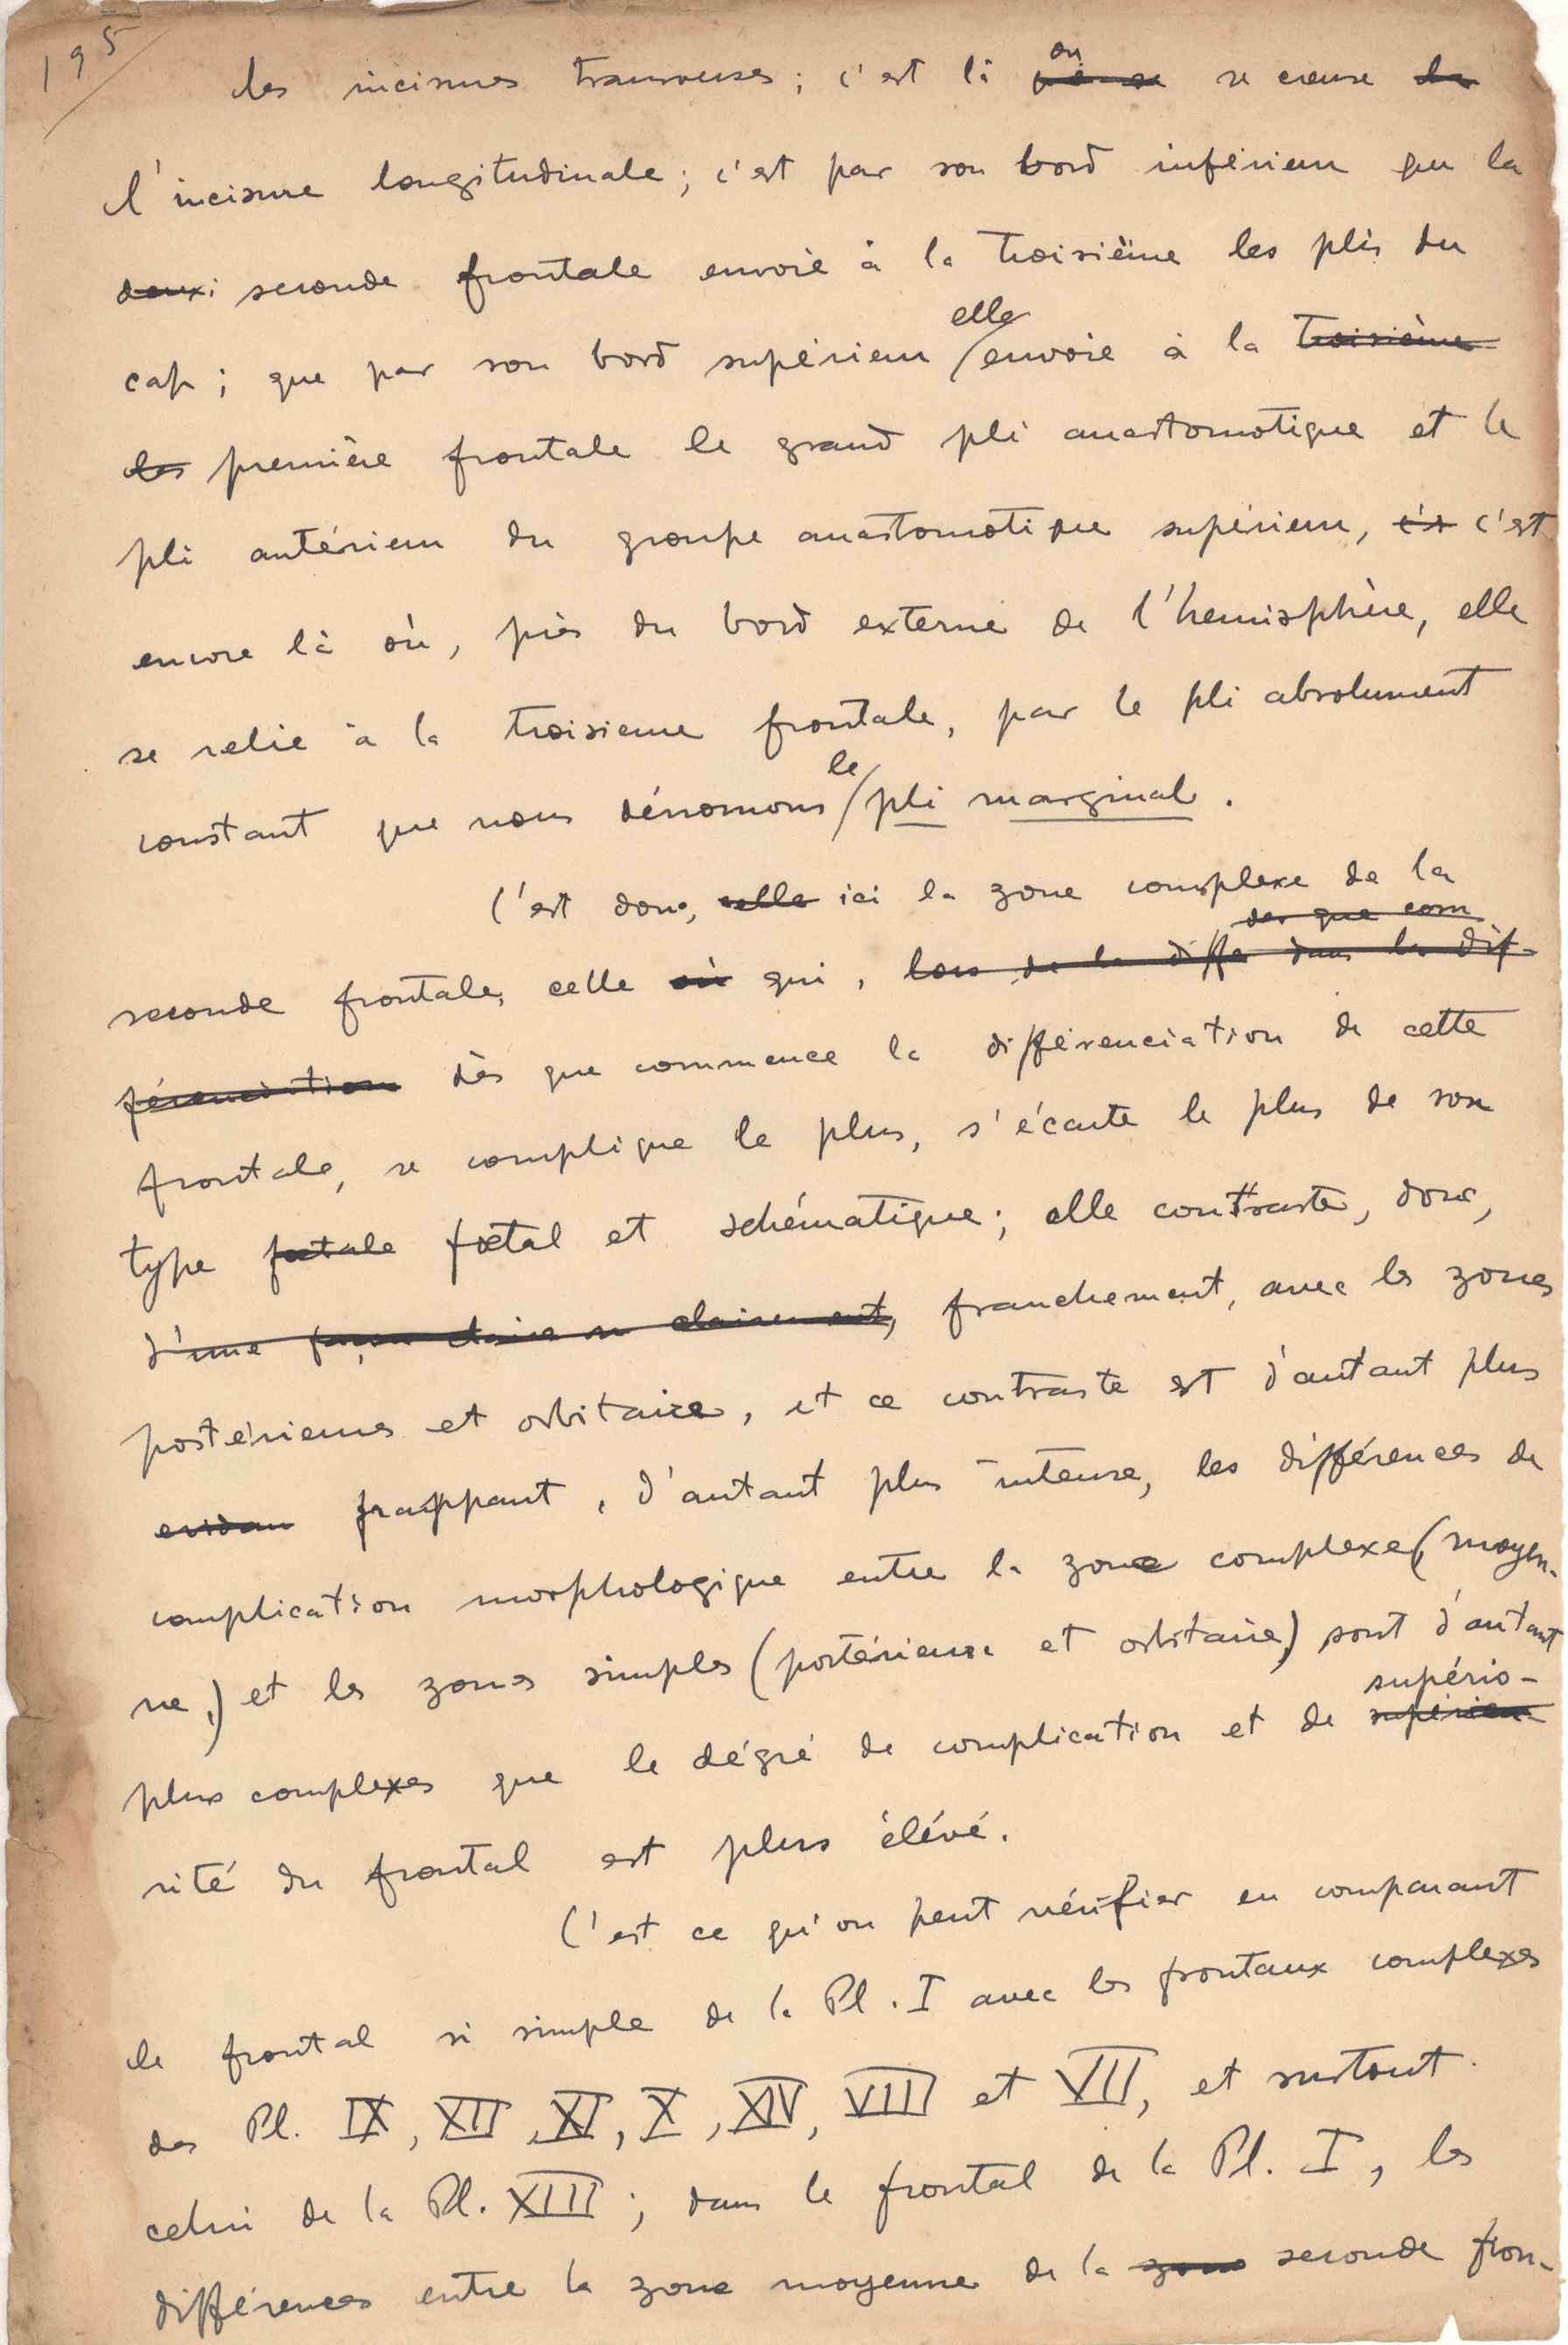 195
les incisures transverses; c'est là où se creuse
l'incisure longitudinale; c'est par son bord inférieur que la
deuxi seconde frontale envoie à la troisième les plis du
cap; que par son bord supérieur elle envoie à la troisième
les première frontale le grand pli anastomotique et le
pli antérieur du groupe anastomotique supérieur, c'es c'est
encore là où, près du bord externe de l'hemisphère, elle
se relie à la troisieme frontale, par le pli absolument
constant que nous dénomons le pli marginal.
C'est donc, celle ici la zone complexe de la
des que com
seconde frontale, celle où qui, lors de la diffe dans la dif-
férenciation dès que commence la différenciation de cette
frontale, se complique le plus, s'écarte le plus de son
type foetale foetal et schématique; elle contraste, donc,
d'une façon claire ou clairement, franchement, avec les zones
postérieures et orbitaire, et ce contraste est d'autant plus
eviden frappant, d'autant plus intense, les différences de
complication morphologique entre la zone complexe (moyen-
ne,) et les zones simples (postérieure et orbitaire,) sont d'autant
plus complexes que le dégré de complication et de supérieu supério-
rité du frontal est plus élévé.
C'est ce qu'on peut vérifier en comparant
le frontal si simple de la Pl. I avec les frontaux complexes
des Pl. IX, XII, XI, X, XIV, VIII et VII, et surtout
celui de la Pl. XIII; dans le frontal de la Pl. I, les
différences entre la zone moyenne de la zone seconde fron-